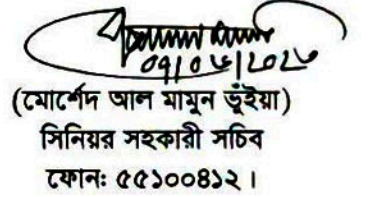 (মোর্শেদ আল মামুন ভূঁইয়া)
সিনিয়র সহকারী সচিব
ফোনঃ ৫৫১০০৪১২।